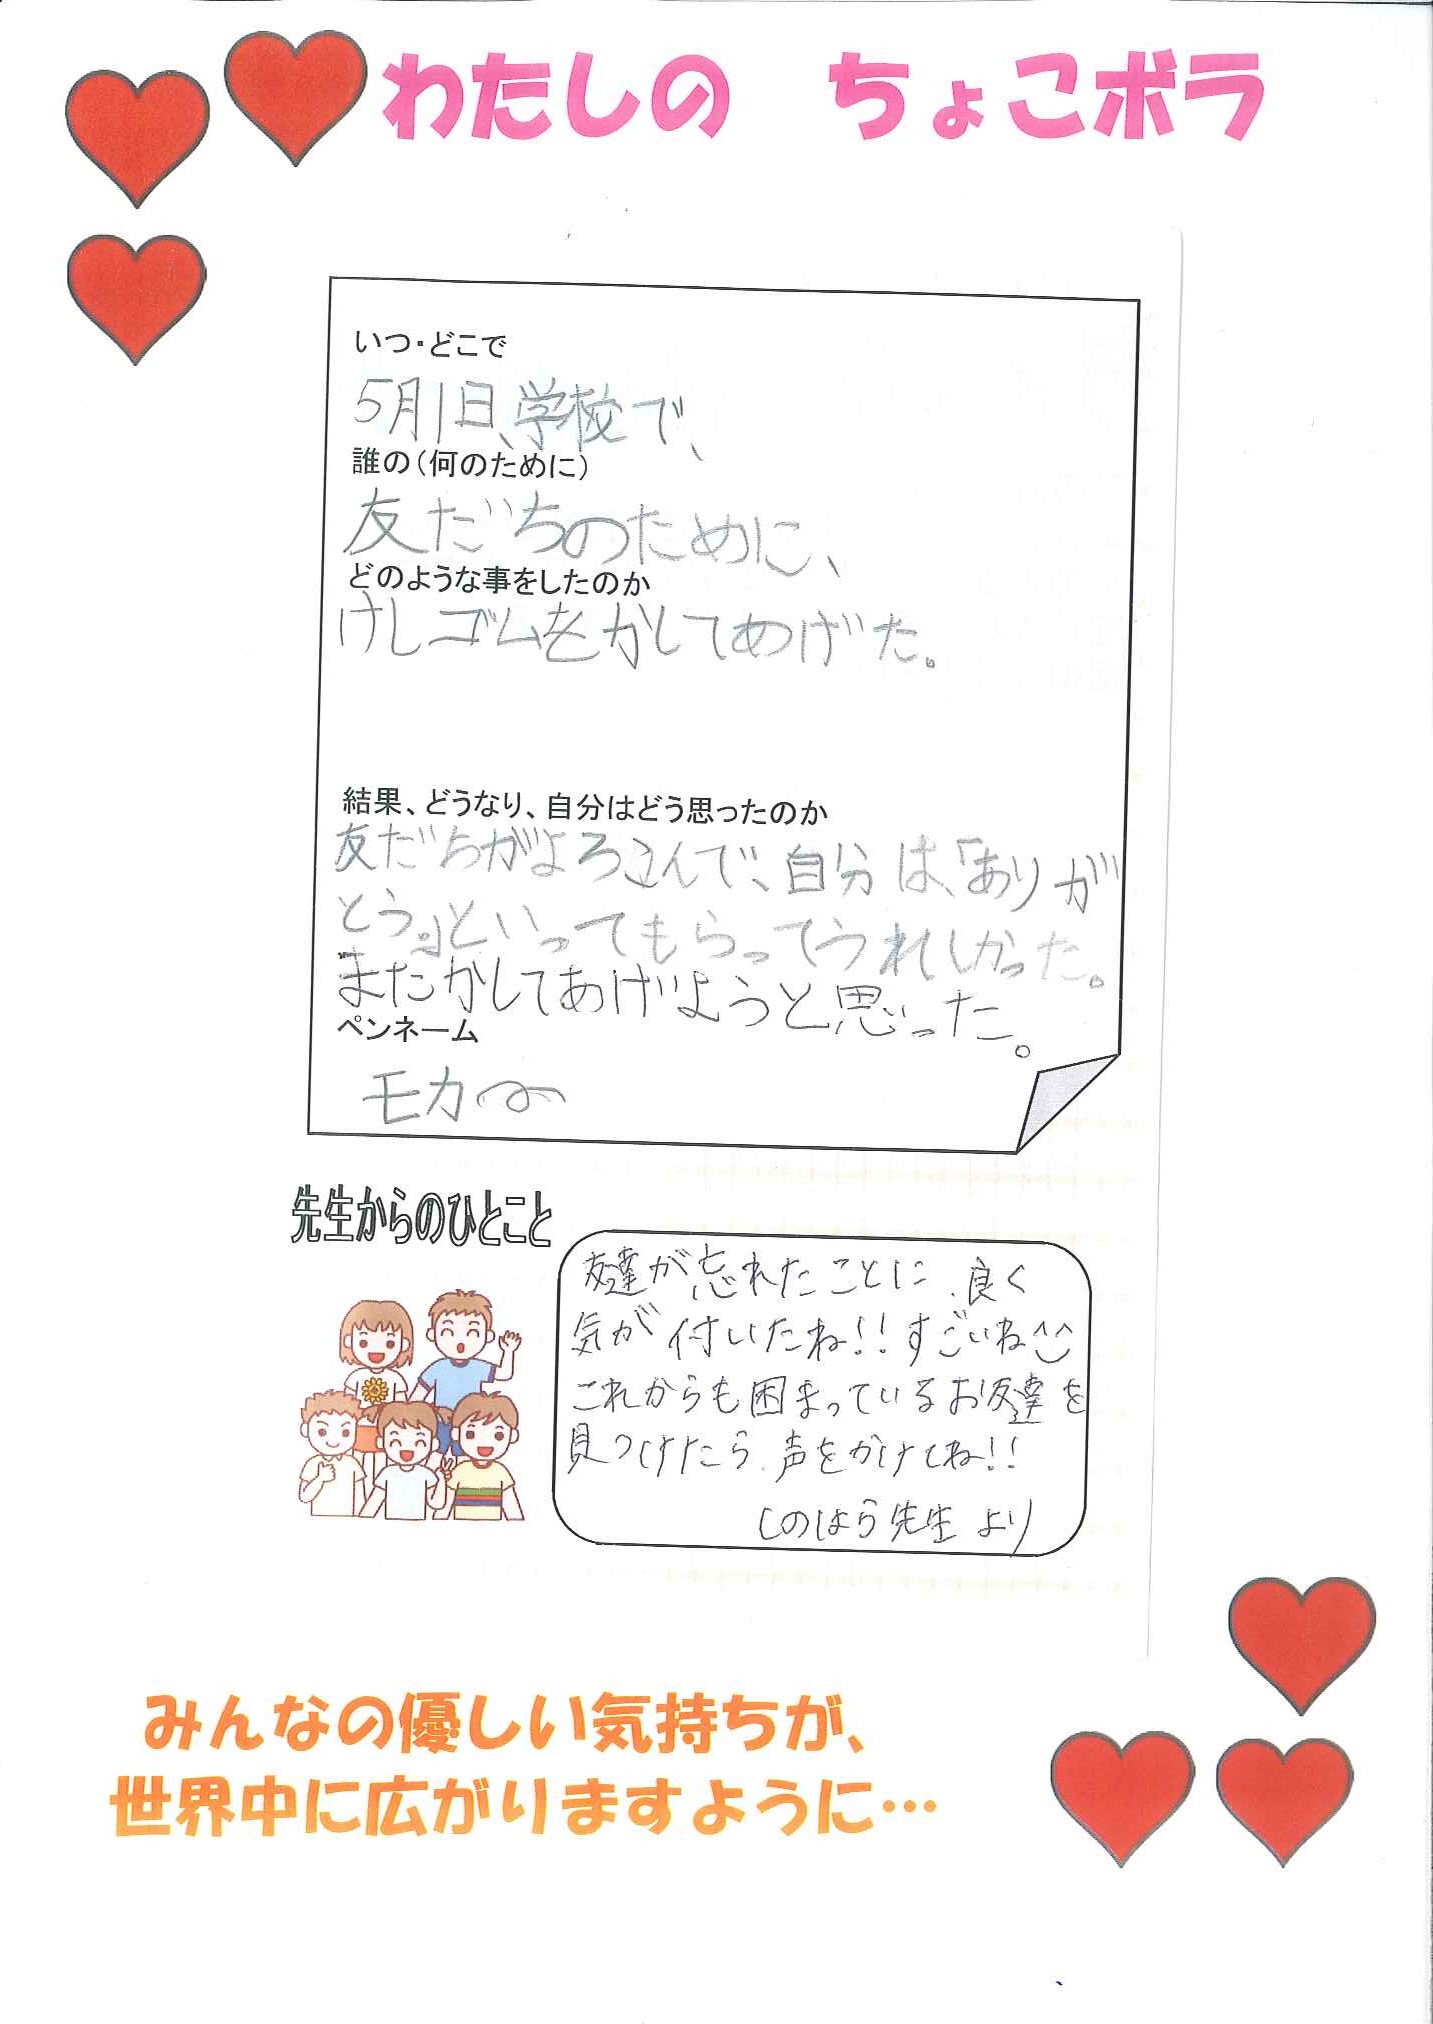 わたしの　ちょこボラ
いつ・どこで
5月1日、学校で、
誰の（何のために）
友だちのために、
どのような事をしたのか
けしゴムをかしてあげた。
結果、どうなり、自分はどう思ったのか
友だちがよろこんで、自分は、「ありが
とう。」といってもらってうれしかった。
またかしてあげようと思った。
ペンネーム
モカ
先生からのひとこと
友達が忘れたことに、良く
気が付いたね!!すごいね^^
これからも困まっているお友達を
見つけたら、声をかけてね!!
しのはら先生より
みんなの優しい気持ちが、
世界中に広がりますように…